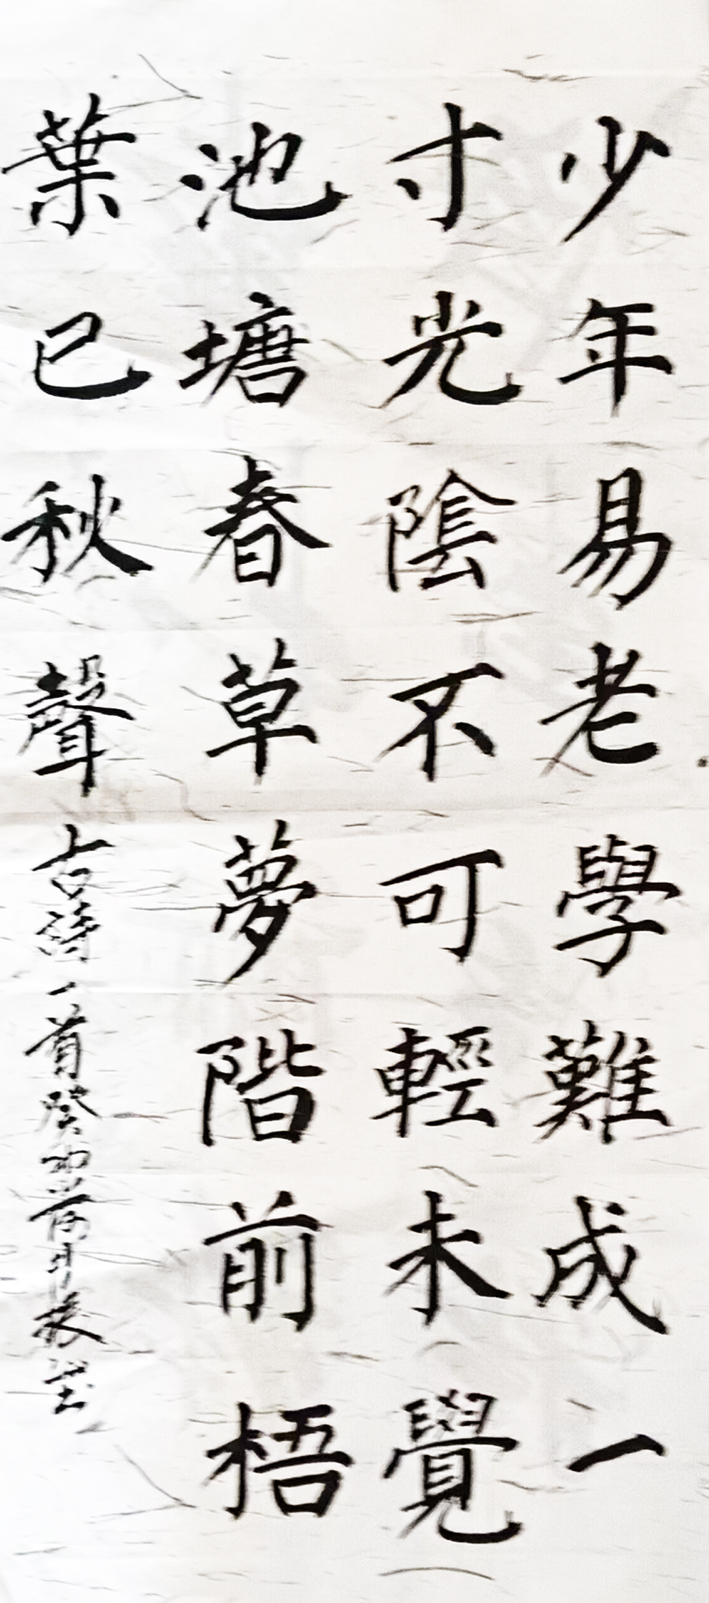 少年易老學難成一
寸光陰不可輕未覺
池塘春草夢階前梧
葉已秋聲
古詩一首癸卯